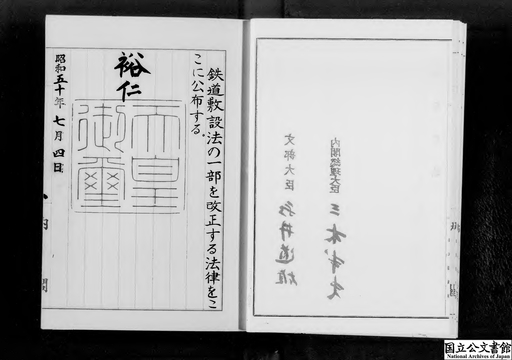 鉄道敷設法の一部を改正する法律をこ
こに公布する。
裕仁
天皇御璽
昭和五十年七月四日
内閣
内閣総理大臣 三木武夫
文部大臣 永井道雄
国立公文書館
National Archives of Japan